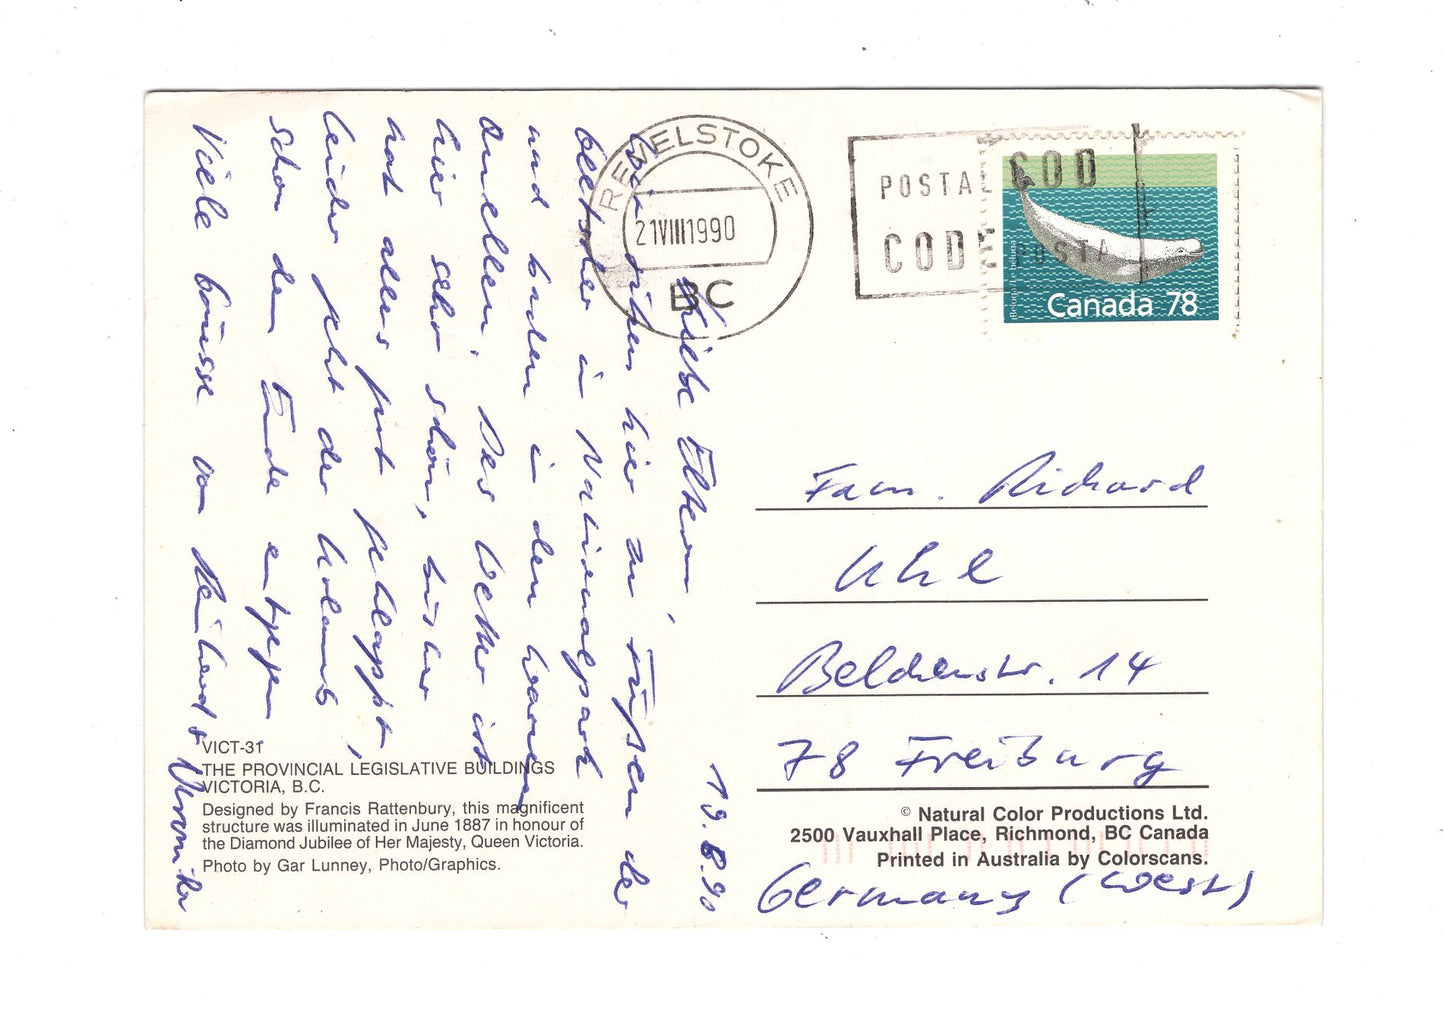 REVELSTOKE
21VIII1990
BC
POSTAL COD
CODE POSTA
Canada 78
19.8.90
Liebe Eltern,
Wir sitzen hier zu Füßen der
Gletscher im Nationalpark
und baden in den warmen
Quellen. Das Wetter ist
hier sehr schön, bisher
hat alles gut geklappt,
leider geht der Urlaub
schon dem Ende entgegen
Viele Grüsse von Reinhard &
Veronika
Fam. Richard
Uhl
Belchenstr. 14
78 Freiburg
Germany (West)
VICT-31
THE PROVINCIAL LEGISLATIVE BUILDINGS
VICTORIA, B.C.
Designed by Francis Rattenbury, this magnificent
structure was illuminated in June 1887 in honour of
the Diamond Jubilee of Her Majesty, Queen Victoria.
Photo by Gar Lunney, Photo/Graphics.
© Natural Color Productions Ltd.
2500 Vauxhall Place, Richmond, BC Canada
Printed in Australia by Colorscans.